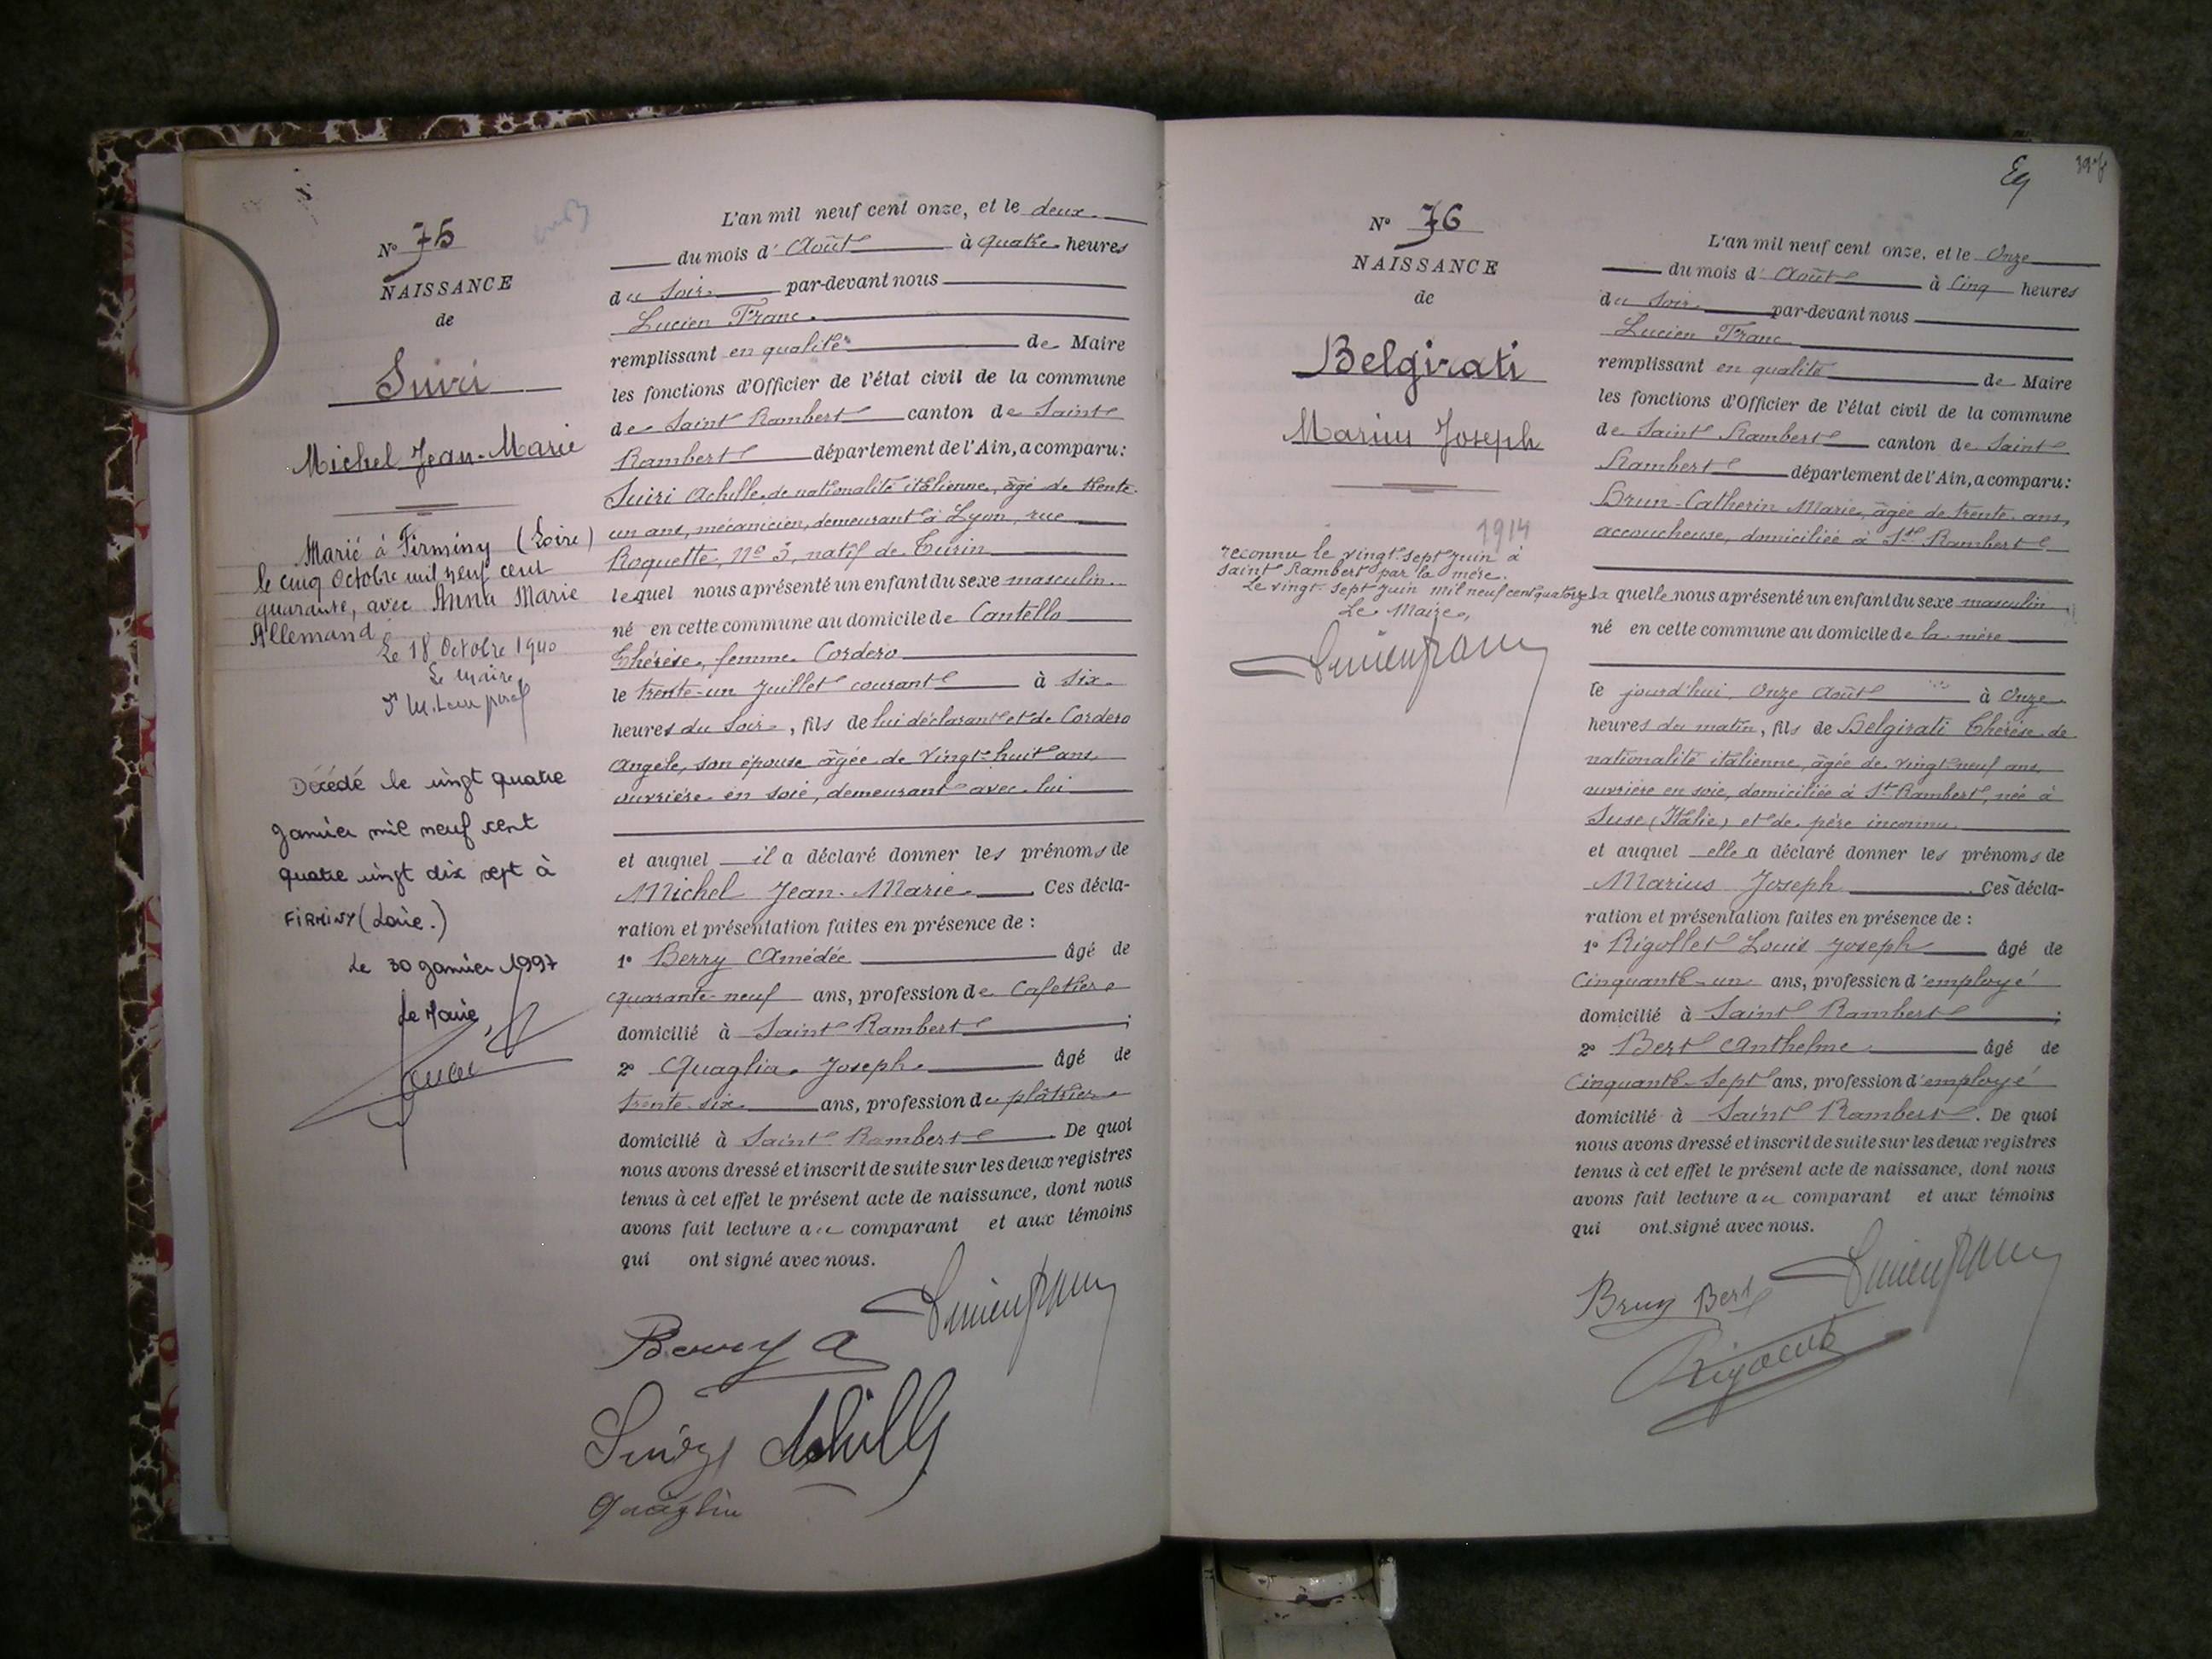 N° 75
NAISSANCE
de
Suiri
Michel Jean-Marie
Marié à Firminy (Loire)
le cinq Octobre mil neuf cent
quarante, avec Anna Marie
Allemand
Le 18 Octobre 1940
Le Maire,
Décédé le vingt quatre
janvier mil neuf cent
quatre vingt dix sept à
FIRMINY (Loire.)
Le 30 janvier 1997
Le Maire,
L'an mil neuf cent onze, et le deux
du mois d'Août à quatre heures
du soir par-devant nous
Lucien Franc
remplissant en qualité de Maire
les fonctions d'Officier de l'état civil de la commune
de Saint Rambert canton de Saint
Rambert département de l'Ain, a comparu:
Suiri Achille, de nationalité italienne, âgé de trente
un ans, mécanicien, demeurant à Lyon, rue
Roquette, N° 3, natif de Turin
lequel nous a présenté un enfant du sexe masculin
né en cette commune au domicile de Cantello
Thérèse, femme Cordero
le trente-un Juillet courant à six
heures du soir, fils de lui déclarant et de Cordero
Angele, son épouse âgée de vingt-huit ans
ouvrière en soie, demeurant avec lui
et auquel il a déclaré donner les prénoms de
Michel Jean-Marie. Ces décla-
ration et présentation faites en présence de :
1° Berry Amédée âgé de
quarante-neuf ans, profession de Cafetier
domicilié à Saint Rambert ;
2° Quaglia Joseph âgé de
trente-six ans, profession de plâtrier
domicilié à Saint Rambert. De quoi
nous avons dressé et inscrit de suite sur les deux registres
tenus à cet effet le présent acte de naissance, dont nous
avons fait lecture au comparant et aux témoins
qui ont signé avec nous.
Lucien Franc
Berry A
Achille
Quaglia
39
N° 76
NAISSANCE
de
Belgirati
Marius Joseph
1914
reconnu le vingt sept juin à
Saint Rambert par la mère.
Le vingt-sept juin mil neuf cent quatorze
Le Maire,
Lucien Franc
L'an mil neuf cent onze, et le Onze
du mois d'Août à Cinq heures
du soir par-devant nous
Lucien Franc
remplissant en qualité de Maire
les fonctions d'Officier de l'état civil de la commune
de Saint Rambert canton de Saint
Rambert département de l'Ain, a comparu:
Brun-Catherin Marie, âgée de trente ans,
accoucheuse, domiciliée à St Rambert
la quelle nous a présenté un enfant du sexe masculin
né en cette commune au domicile de la mère
le jourd'hui Onze Août à Onze
heures du matin, fils de Belgirati Thérèse de
nationalité italienne, âgée de vingt-neuf ans
ouvrière en soie, domiciliée à St Rambert, née à
Suse (Italie) et de père inconnu
et auquel elle a déclaré donner les prénoms de
Marius Joseph. Ces décla-
ration et présentation faites en présence de :
1° Rigollet Louis Joseph âgé de
Cinquante-un ans, profession d'employé
domicilié à Saint Rambert ;
2° Bert Anthelme âgé de
Cinquante-sept ans, profession d'employé
domicilié à Saint Rambert. De quoi
nous avons dressé et inscrit de suite sur les deux registres
tenus à cet effet le présent acte de naissance, dont nous
avons fait lecture au comparant et aux témoins
qui ont signé avec nous.
Brun Bert Lucien Franc